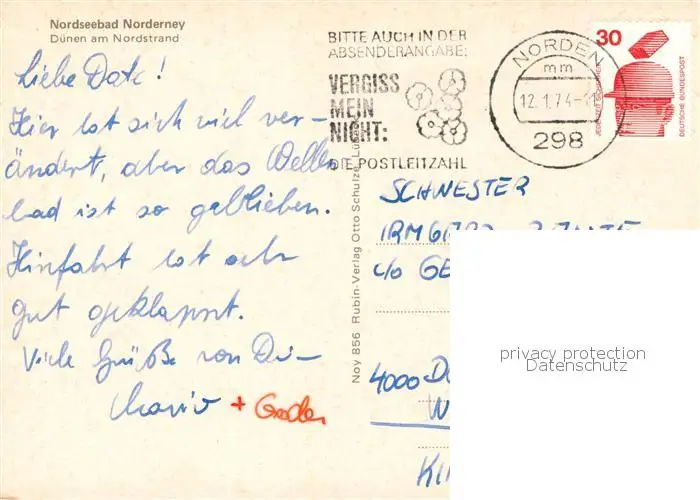 Nordseebad Norderney
Dünen am Nordstrand
Liebe Date!
Hier hat sich viel ver-
ändert, aber das Wellen
bad ist so geblieben.
Hinfahrt hat sehr
gut geklappt.
Viele Grüße von Dei-
+
BITTE AUCH IN DER
ABSENDERANGABE:
VERGISS
MEIN
NICHT:
DIE POSTLEITZAHL
NORDEN
mm
12.1.74-11
298
30
JEDERZEIT SICHERHEIT
DEUTSCHE BUNDESPOST
Noy 856 Rubin-Verlag Otto Schulze, Lü
SCHWESTER
IRMGARD
c/o GE
4000 D
W
KI
privacy protection
Datenschutz